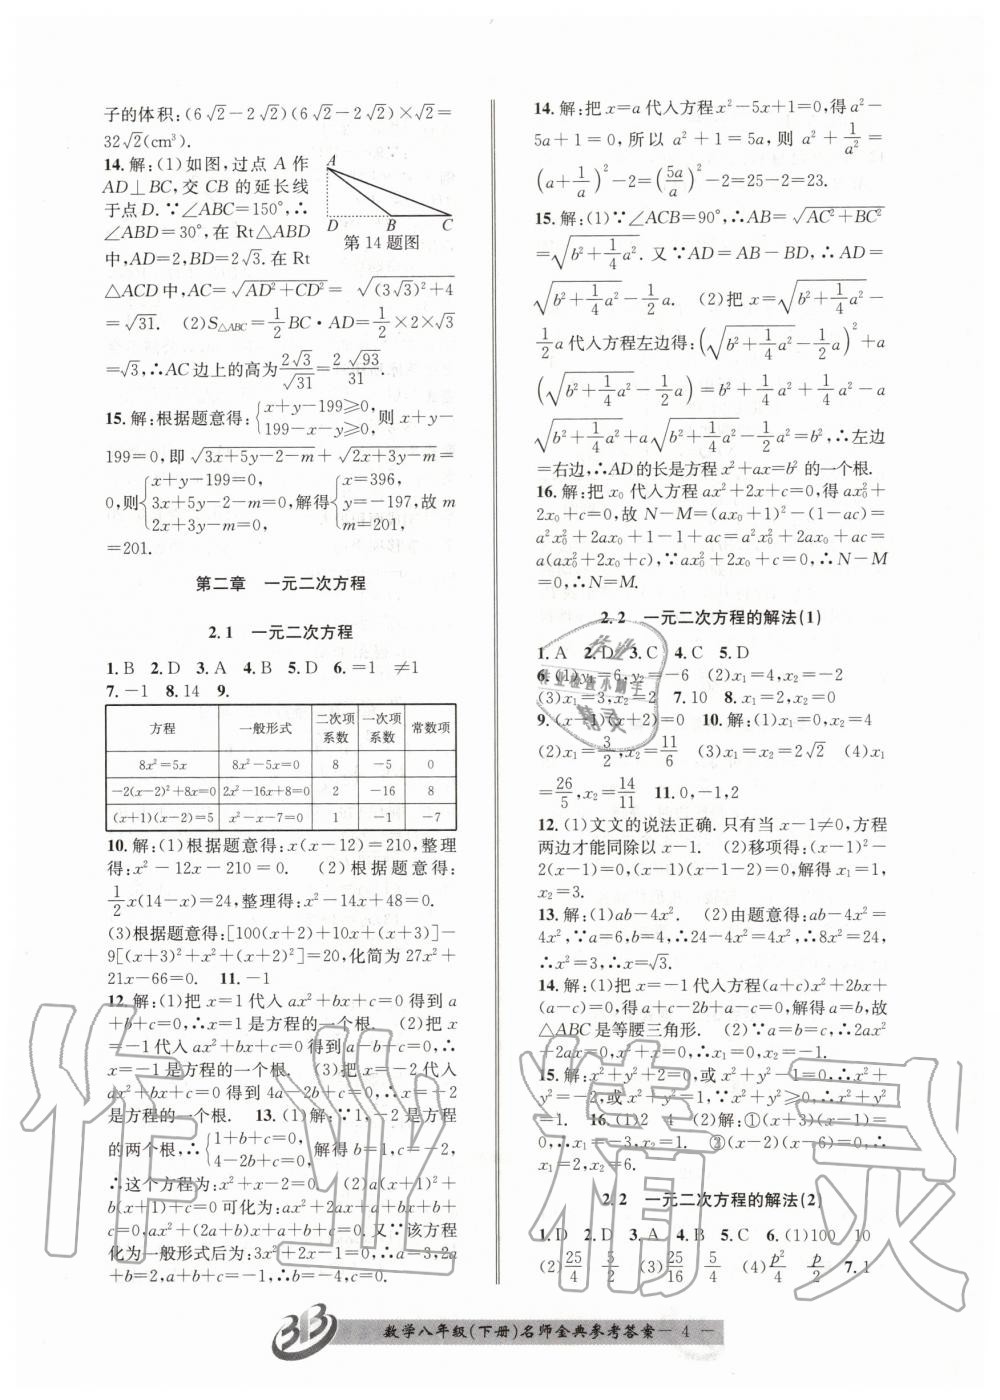 子的体积:(6√2-2√2)(6√2-2√2)×√2=
32√2(cm³).
14.解:(1)如图,过点 A 作
AD⊥BC,交 CB 的延长线
于点 D.∵∠ABC=150°,∴
∠ABD=30°,在 Rt△ABD
中,AD=2,BD=2√3.在 Rt
A
D B C
第14题图
△ACD 中,AC=√(AD²+CD²)= √((3√3)²+4)
=√31. (2)S△ABC=1/2 BC·AD=1/2×2×√3
=√3,∴AC 边上的高为 2√3/√31=2√93/31.
15.解:根据题意得:{x+y-199≥0, 199-x-y≥0, 则 x+y-
199=0,即 √(3x+5y-2-m)+√(2x+3y-m)=
0,则{x+y-199=0, 3x+5y-2-m=0, 2x+3y-m=0, 解得{x=396, y=-197, m=201, 故 m
=201.
第二章 一元二次方程
2.1 一元二次方程
1.B 2.D 3.A 4.B 5.D 6.=1 ≠1
7.-1 8.14 9.
方程 一般形式 二次项系数 一次项系数 常数项
8x²=5x 8x²-5x=0 8 -5 0
-2(x-2)²+8x=0 2x²-16x+8=0 2 -16 8
(x+1)(x-2)=5 x²-x-7=0 1 -1 -7
10.解:(1)根据题意得:x(x-12)=210,整理
得:x²-12x-210=0. (2)根据题意得:
1/2 x(14-x)=24,整理得:x²-14x+48=0.
(3)根据题意得:[100(x+2)+10x+(x+3)]-
9[(x+3)²+x²+(x+2)²]=20,化简为 27x²+
21x-66=0. 11.-1
12.解:(1)把 x=1 代入 ax²+bx+c=0 得到 a
+b+c=0,∴x=1 是方程的一个根. (2)把 x
=-1 代入 ax²+bx+c=0 得到 a-b+c=0,∴x
=-1 是方程的一个根. (3)把 x=-2 代入
ax²+bx+c=0 得到 4a-2b+c=0,∴x=-2
是方程的一个根. 13.(1)解:∵1,-2 是方程
的两个根,∴{1+b+c=0, 4-2b+c=0, 解得 b=1,c=-2,
∴这个方程为:x²+x-2=0. (2)∵a(x+1)²+
b(x+1)+c=0 可化为:ax²+2ax+a+bx+b+
c=0,∴ax²+(2a+b)x+a+b+c=0. 又∵该方程
化为一般形式后为:3x²+2x-1=0,∴a=3,2a
+b=2,a+b+c=-1,∴b=-4,c=0.
14.解:把 x=a 代入方程 x²-5x+1=0,得 a²-
5a+1=0,所以 a²+1=5a,则 a²+1/a²=
(a+1/a)²-2=(5a/a)²-2=25-2=23.
15.解:(1)∵∠ACB=90°,∴AB=√(AC²+BC²)
=√(b²+1/4 a²). 又∵AD=AB-BD,∴AD=
√(b²+1/4 a²)-1/2 a. (2)把 x=√(b²+1/4 a²)-
1/2 a 代入方程左边得:(√(b²+1/4 a²)-1/2 a)²+a
(√(b²+1/4 a²)-1/2 a)=b²+1/4 a²+1/4 a²-a
√(b²+1/4 a²)+a√(b²+1/4 a²)-1/2 a²=b²,∴左边
=右边,∴AD 的长是方程 x²+ax=b² 的一个根.
16.解:把 x₀ 代入方程 ax²+2x+c=0,得 ax₀²+
2x₀+c=0,故 N-M=(ax₀+1)²-(1-ac)=
a²x₀²+2ax₀+1-1+ac=a²x₀²+2ax₀+ac=
a(ax₀²+2x₀+c),∵ax₀²+2x₀+c=0,∴N-M
=0,∴N=M.
2.2 一元二次方程的解法(1)
1.A 2.D 3.C 4.C 5.D
6.(1)y₁=6,y₂=-6 (2)x₁=4,x₂=-2
(3)x₁=3,x₂=2 7.10 8.x₁=2,x₂=0
9.(x-1)(x+2)=0 10.解:(1)x₁=0,x₂=4
(2)x₁=3/2,x₂=11/6 (3)x₁=x₂=2√2 (4)x₁
=26/5,x₂=14/11 11.0,-1,2
12.(1)文文的说法正确.只有当 x-1≠0,方程
两边才能同除以 x-1. (2)移项得:(x-1)²-
2(x-1)=0,(x-1)(x-1-2)=0,解得 x₁=1,
x₂=3.
13.解:(1)ab-4x². (2)由题意得:ab-4x²=
4x²,∵a=6,b=4,∴24-4x²=4x²,∴8x²=24,
∴x²=3,∴x=√3.
14.解:(1)把 x=-1 代入方程(a+c)x²+2bx+
(a-c)=0,得 a+c-2b+a-c=0,解得 a=b,故
△ABC 是等腰三角形. (2)∵a=b=c,∴2ax²
+2ax=0,x²+x=0,∴x₁=0,x₂=-1.
15.解:x²+y²+1=0,或 x²+y²-1=0,∴x²+
y²=-1,或 x²+y²=1,∵x²+y²≥0,∴x²+y²
=1. 16.(1)2 4 (2)解:①(x+3)(x-1)=
0,∴x₁=-3,x₂=1. ②(x-2)(x-6)=0,∴
x₁=2,x₂=6.
2.2 一元二次方程的解法(2)
1.D 2.D 3.A 4.B 5.C 6.(1)100 10
(2)25/4 5/2 (3)25/16 5/4 (4)p²/4 p/2 7.1
数学八年级(下册)名师金典参考答案— 4 —
作业精灵